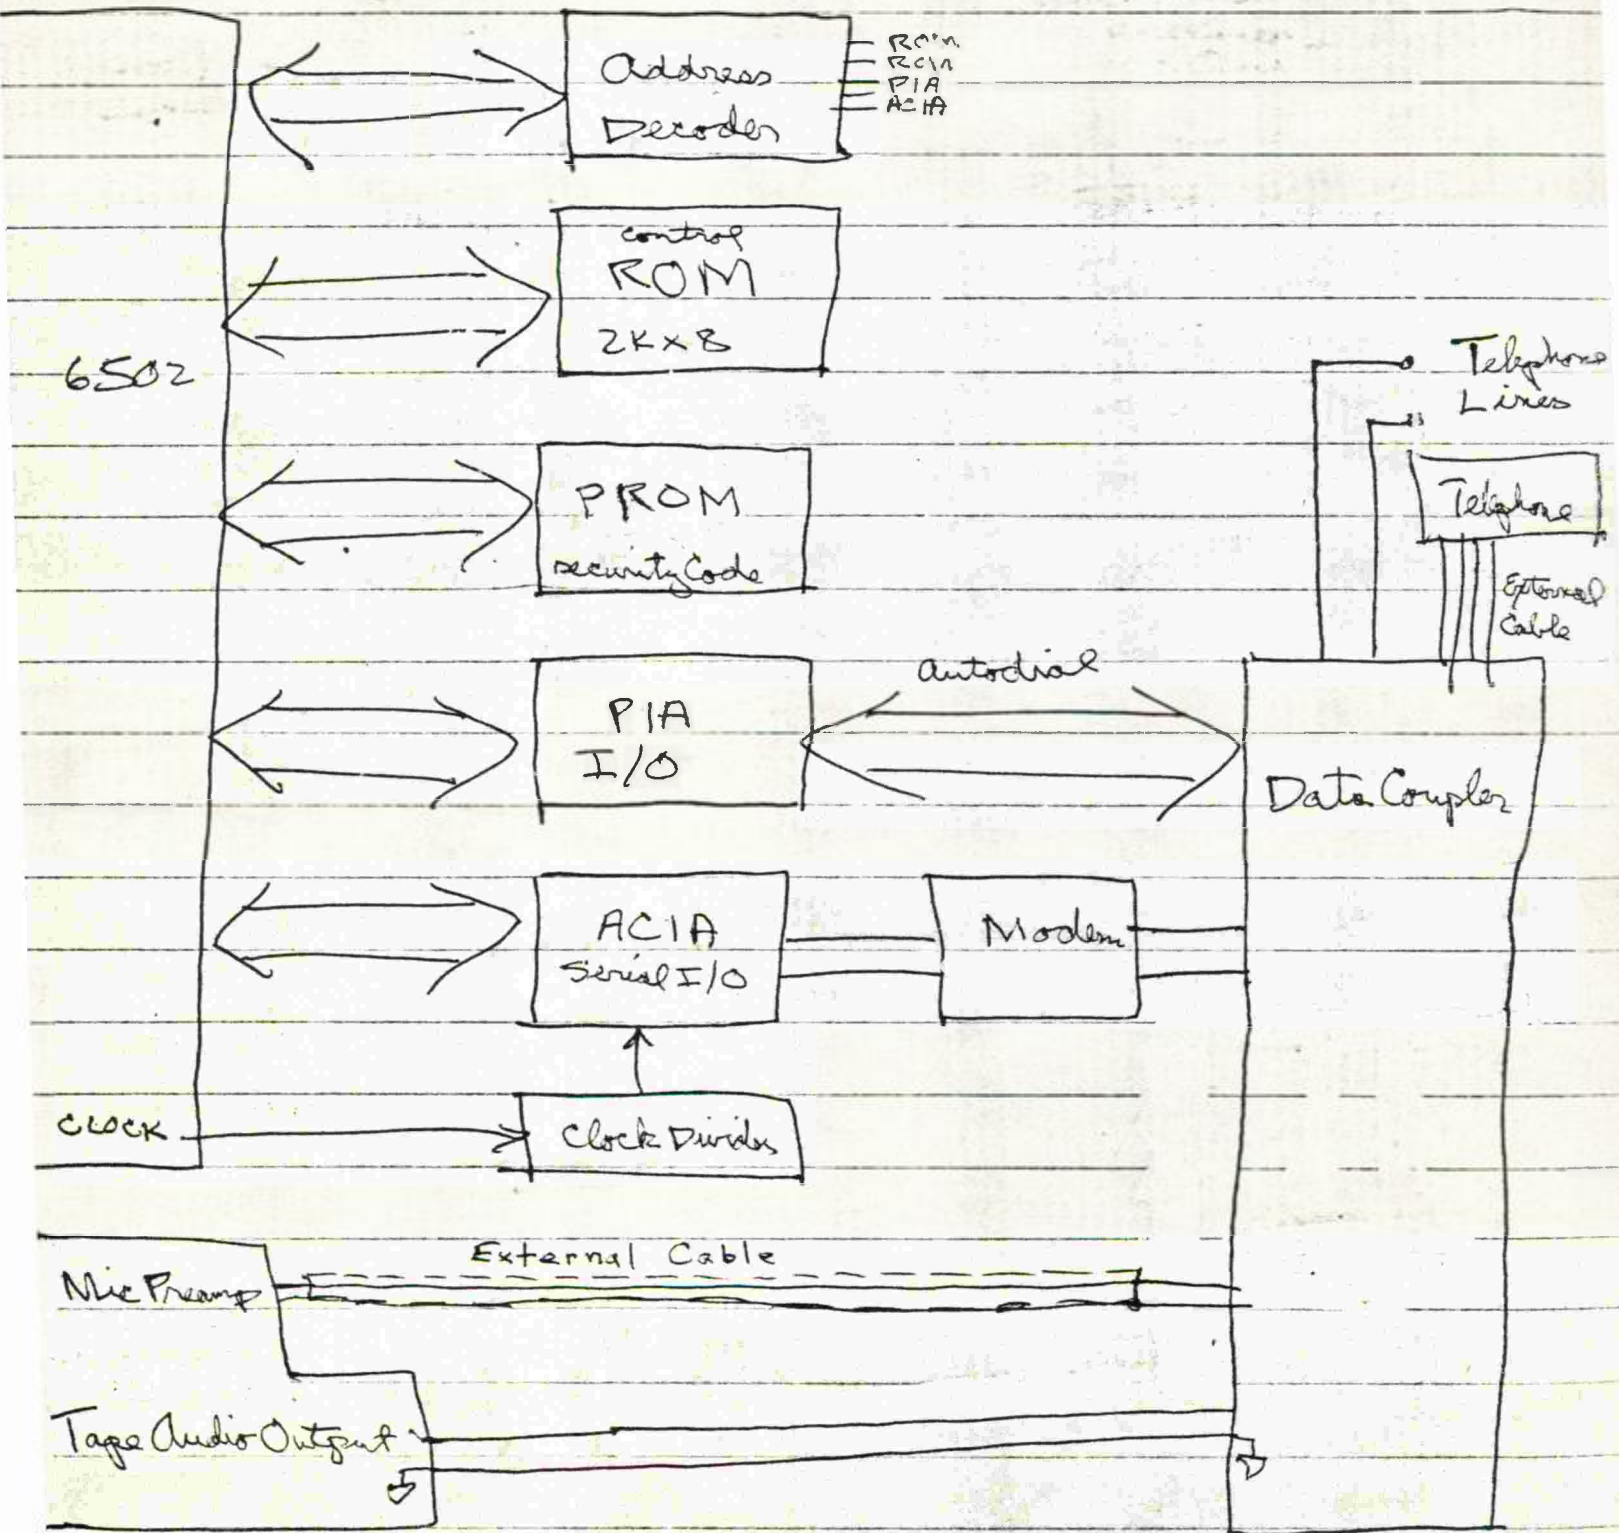 Address
Decoder
ROM
ROM
PIA
ACIA
control
ROM
2K x 8
6502
Telephone
Lines
PROM
security Code
Telephone
External
Cable
autodial
PIA
I/O
Data Coupler
ACIA
Serial I/O
Modem
CLOCK
Clock Divider
External Cable
Mic Preamp
Tape Audio Output